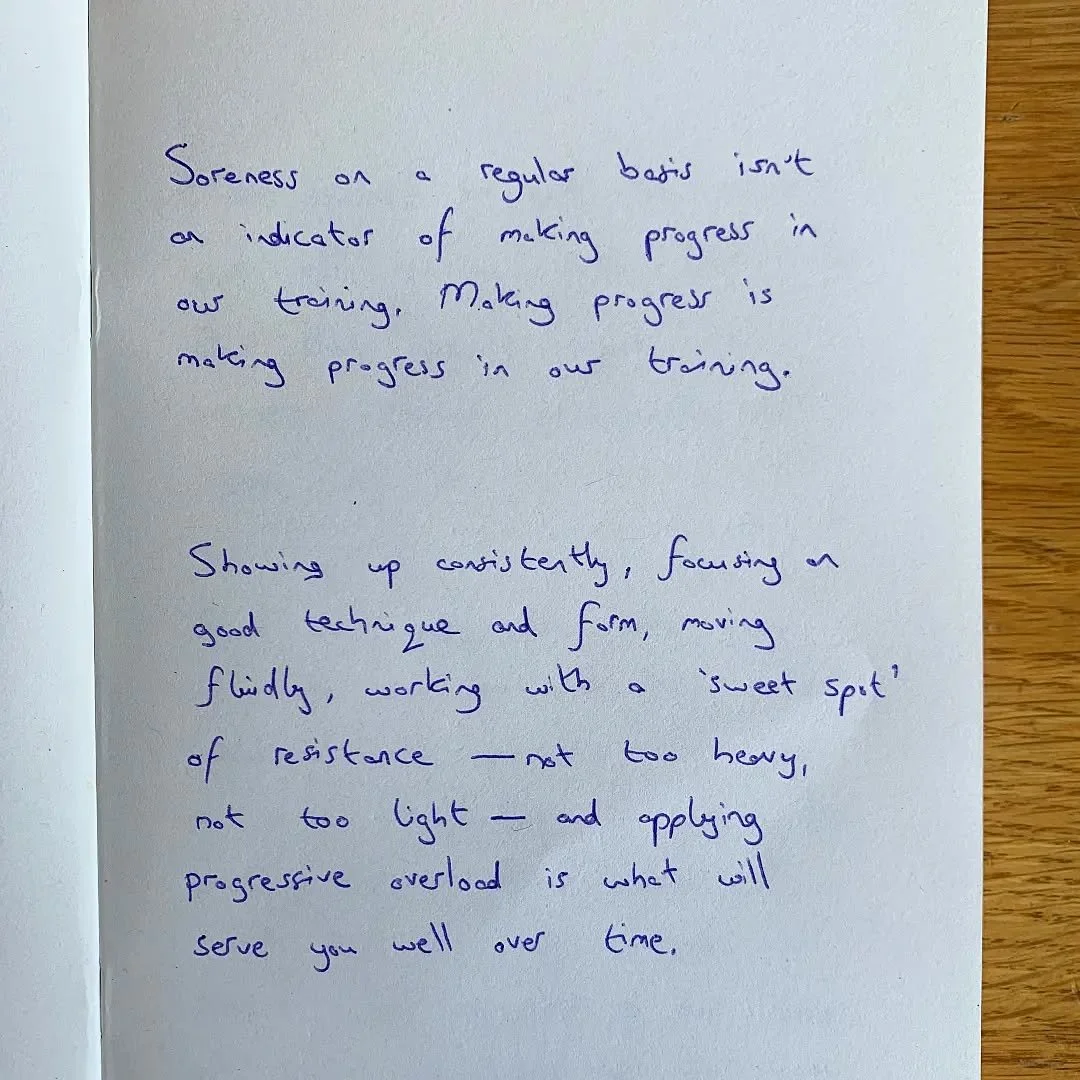 Soreness on a regular basis isn't
an indicator of making progress in
our training. Making progress is
making progress in our training.
Showing up consistently, focusing on
good technique and form, moving
fluidly, working with a 'sweet spot'
of resistance — not too heavy,
not too light — and applying
progressive overload is what will
serve you well over time.